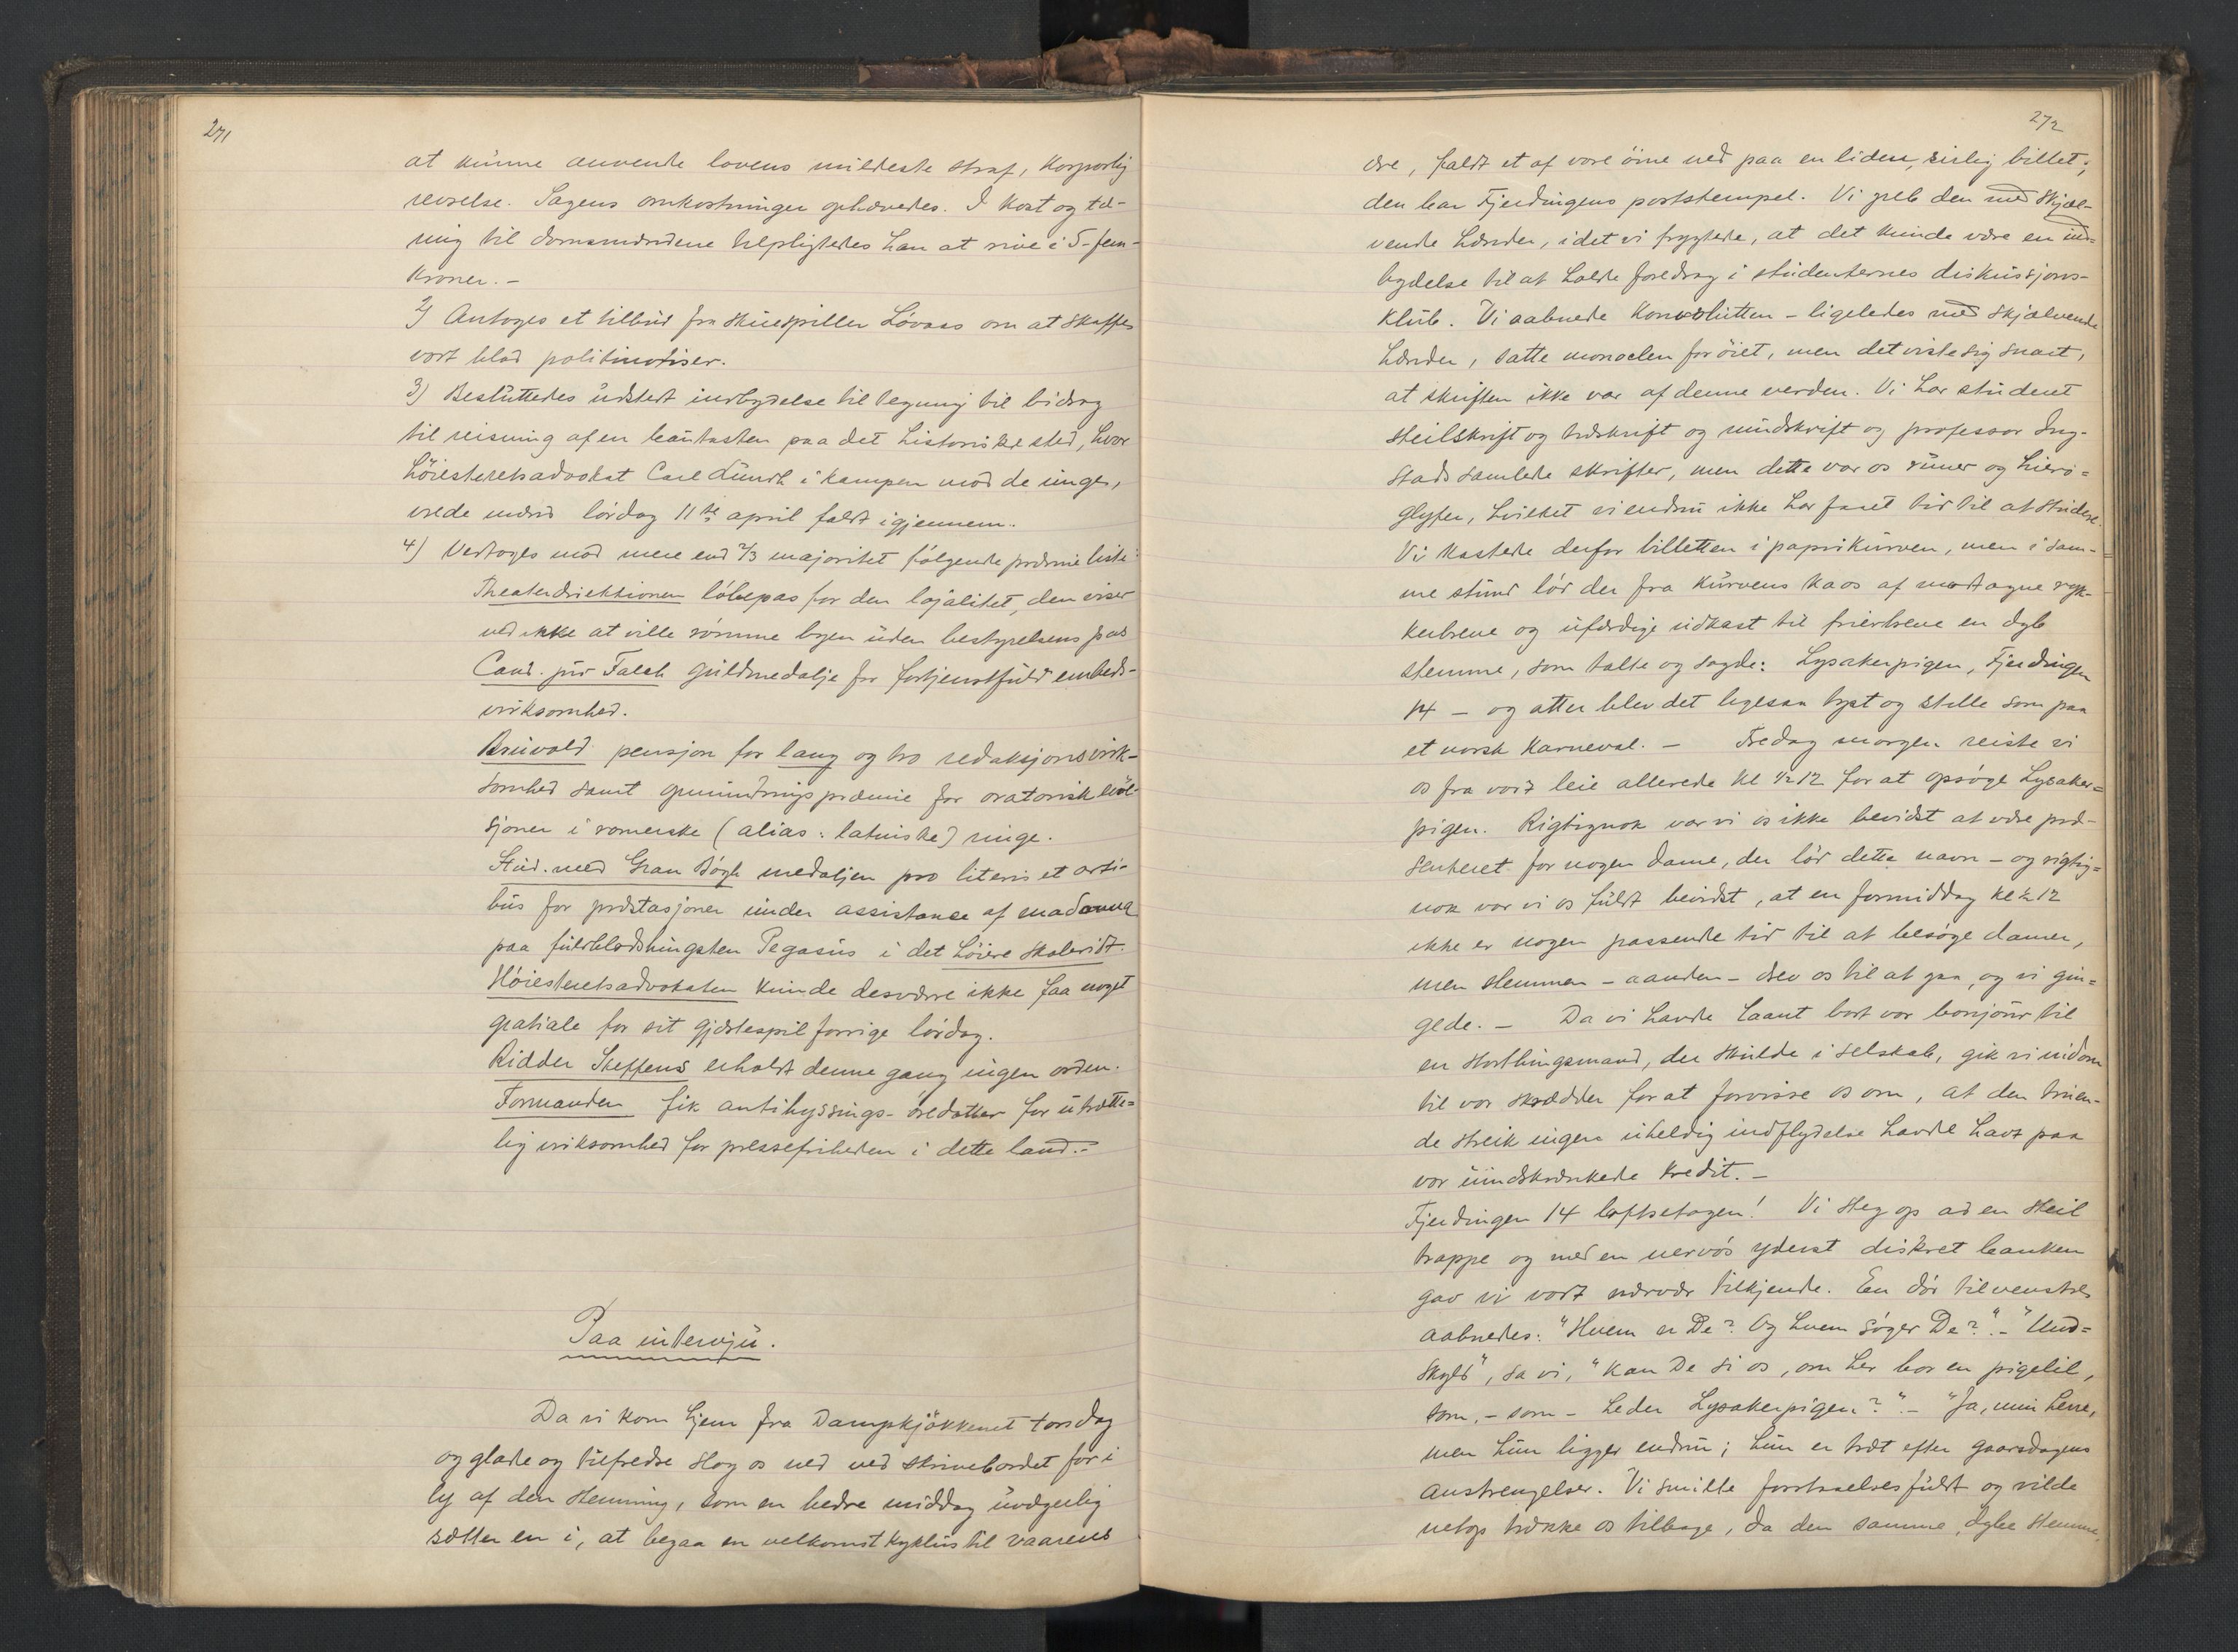 271
at kunne anvende lovens mildeste straf, korporlig
revselse. Sagens omkostninger ophævedes. I kost og tæ-
ring til domsmændene tilpligtedes han at rive i 5-fem-
kroner.-
2) Antoges et tilbud fra skuespiller Løvaas om at skaffe
vort blad politinotiser.
3) Besluttedes udstedt indbydelse til tegning til bidrag
til reisning af en bautasten paa det historiske sted, hvor
høiesteretsadvokat Carl Lundh i kampen mod de unge,
vrede mænd lørdag 11te april faldt igjennem.
4) Vedtoges mod mere end 2/3 majoritet følgende præmieliste:
Theaterdirektionen løbepas for den lojalitet, den viser
ved ikke at ville rømme byen uden bestyrelsens pas
Cand. jur Falch guldmedalje for fortjenstfuld embeds-
virksomhed.
Bruvold pensjon for lang og tro redaksjonsvirk-
somhed samt opmuntringspræmie for oratorisk
sjoner i romerske (alias: latinske) ringe.
Stud. med Gran Bøgh medaljen pro literis et arti-
bus for præstasjoner under assistanse af madonna
paa fuldblodshingsten Pegasus i det høiere skoleridt.
Høiesteretsadvokaten kunde desværre ikke faa noget
gratiale for sit gjæstespil forrige lørdag.
Ridder Steffens erholdt denne gang ingen orden.
Formanden fik antihyssings-øredotter for utrætte=
lig virksomhed for pressefriheden i dette land.-
Paa intervju.
Da vi kom hjem fra Dampkjøkkenet torsdag
og glade og tilfredse slog os ned ved skrivebordet for i
ly af den stemning, som en bedre middag uvægerlig
sætter en i, at begaa en velkomstkyklus til vaarens
272
ære, faldt et af vore øine ned paa en liden, sirlig billet;
den bar Fjerdingens poststempel. Vi greb den med skjæl-
vende hænder, idet vi frygtede, at det kunde være en ind=
bydelse til at holde foredrag i studenternes diskussjons-
klub. Vi aabnede konvolutten - ligeledes med skjælvende
hænder, satte monoclen for øiet, men det viste sig snart,
at skriften ikke var af denne verden. Vi har studeret
steilskrift og bredskrift og rundskrift og professor Ing-
stads samlede skrifter, men dette var os runer og hiero=
glyfer, hvilket vi endnu ikke har faaet tid til at studere.
Vi kastede derfor billetten i papirkurven, men i sam-
me stund lød der fra kurvens kaos af modtagne ryk-
kerbreve og ufærdige udkast til frierbreve en dyb
stemme, som talte og sagde: Lysakerpigen, Fjerdingen
14 - og atter blev det ligesaa tyst og stille som paa
et norsk karneval. - Fredag morgen reiste vi
os fra vort leie allerede kl 1/2 12 for at opsøge Lysaker=
pigen. Rigtignok var vi os ikke bevidst at være præ-
senteret for nogen dame, der lød dette navn - og rigtig=
nok var vi os fuldt bevidst, at en formiddag kl 1/2 12
ikke er nogen passende tid til at besøge damer,
men stemmen - aanden - drev os til at gaa, og vi gin=
gede. - Da vi havde laant bort vor bonjour til
en storthingsmand, der skulde i selskab, gik vi indom
til vor skrædder for at forvisse os om, at den truen-
de streik ingen uheldig indflydelse havde havt paa
vor uindskrænkede kredit. -
Fjerdingen 14 loftsetagen! Vi steg op ad en steil
trappe og med en nervøs yderst diskret banken
gav vi vort nærvær tilkjende. En dør tilvenstre
aabnedes: "Hvem er De? Og hvem søger De?". - "Und=
skyld", sa vi, "kan De si os, om her bor en pigelil,
som, - som - heder Lysakerpigen?". - "Ja, min herre,
men hun ligger endnu; hun er træt efter gaarsdagens
anstrengelser. Vi smilte forstaaelsesfuldt og vilde
netop trække os tilbage, da den samme, dybe stemme,